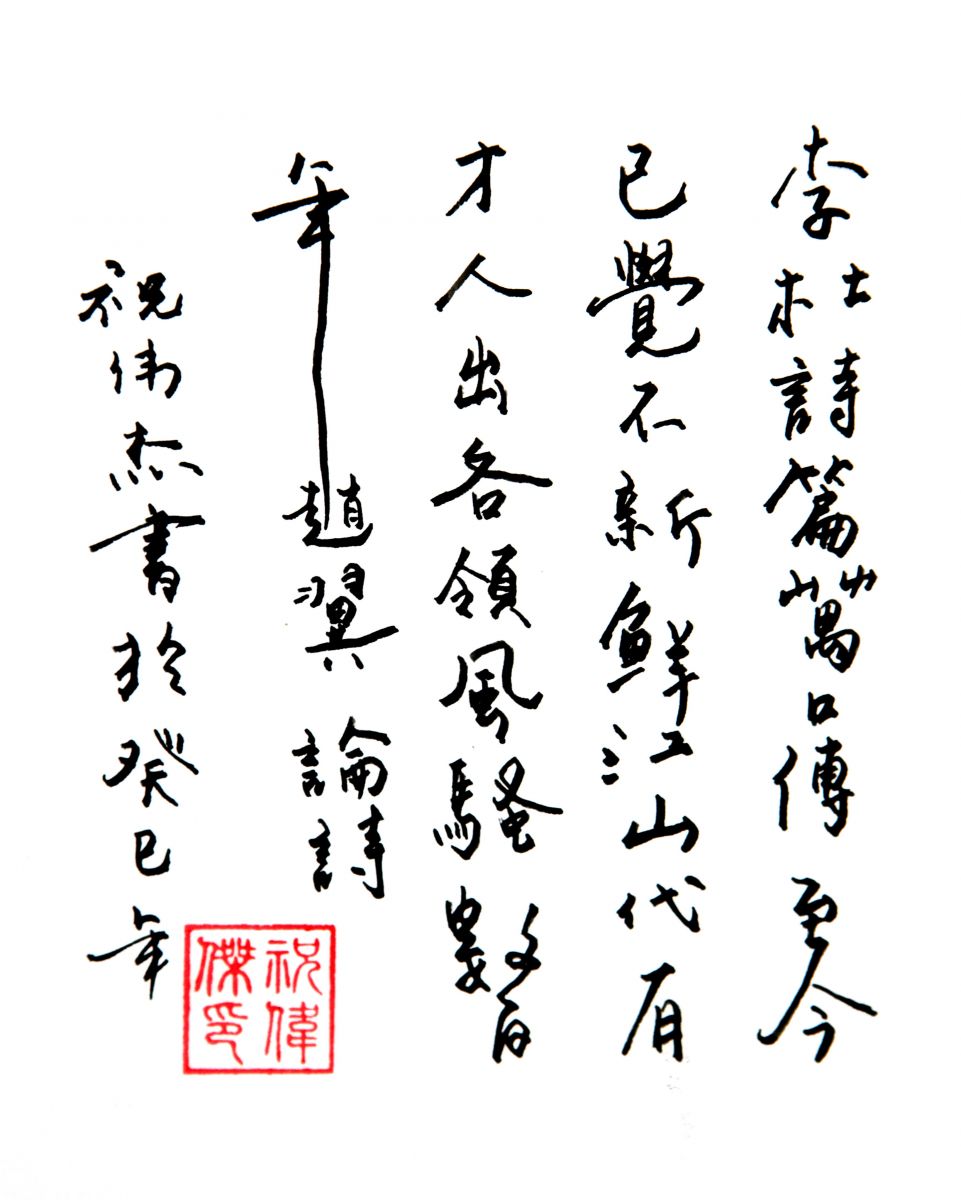 李杜詩篇萬口傳至今
已覺不新鮮江山代有
才人出各領風騷數百
年 趙翼 論詩
祝伟杰書於癸巳年
祝偉
傑印